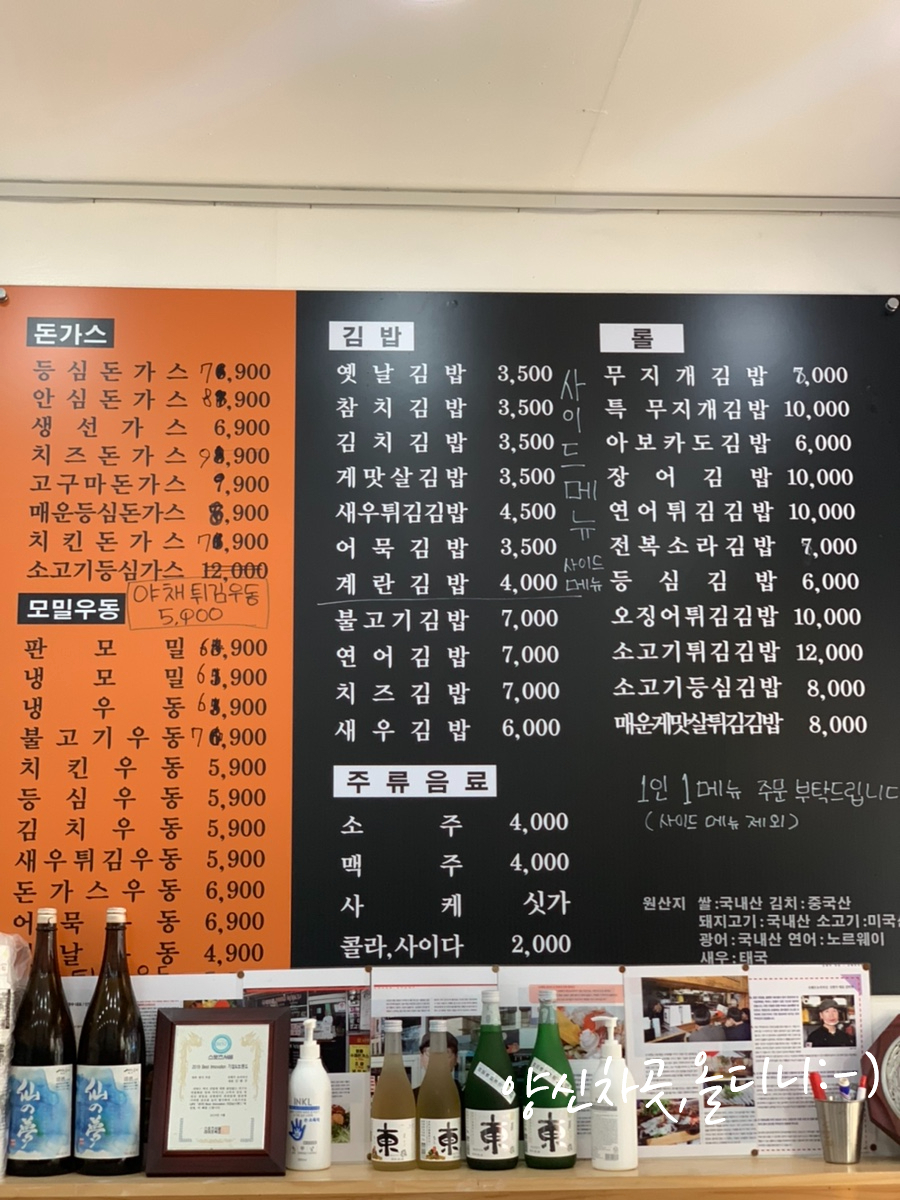 돈가스
등심돈가스 7,900
안심돈가스 8,900
생선가스 6,900
치즈돈가스 9,900
고구마돈가스 9,900
매운등심돈가스 8,900
치킨돈가스 7,900
소고기등심가스 12,000
모밀우동
야채튀김우동
5,900
판모밀 6,900
냉모밀 6,900
냉우동 6,900
불고기우동 7,900
치킨우동 5,900
등심우동 5,900
김치우동 5,900
새우튀김우동 5,900
돈가스우동 6,900
어묵우동 6,900
날 동 4,900
김밥
옛날김밥 3,500
참치김밥 3,500
김치김밥 3,500
게맛살김밥 3,500
새우튀김김밥 4,500
어묵김밥 3,500
계란김밥 4,000
사이드메뉴
사이드
메뉴
불고기김밥 7,000
연어김밥 7,000
치즈김밥 7,000
새우김밥 6,000
주류음료
소주 4,000
맥주 4,000
사케 싯가
콜라,사이다 2,000
롤
무지개김밥 8,000
특무지개김밥 10,000
아보카도김밥 6,000
장어김밥 10,000
연어튀김김밥 10,000
전복소라김밥 7,000
등심김밥 6,000
오징어튀김김밥 10,000
소고기튀김김밥 12,000
소고기등심김밥 8,000
매운게맛살튀김김밥 8,000
1인 1메뉴 주문 부탁드립니다
(사이드 메뉴 제외)
원산지 쌀:국내산 김치:중국산
돼지고기:국내산 소고기:미국산
광어:국내산 연어:노르웨이
새우:태국
仙の夢
仙の夢
INKL
東
東
東
東
양신차곳,올디니:-)